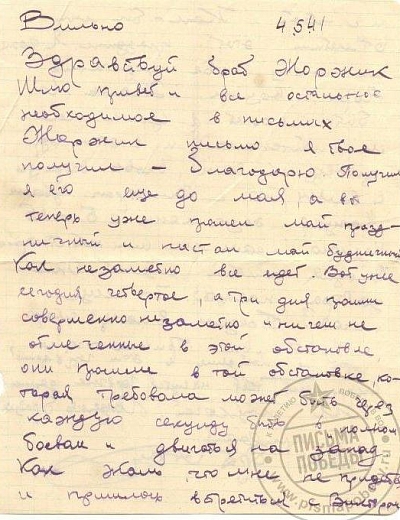 Вильно 4 5 41
Здравствуй брат Жоржик
Шлю привет и все остальное
необходимое в письмах
Жоржик письмо я твое
получил — Благодарю Получил
я его еще до мая, а вот
теперь уже прошел май празд-
ничный и настал май будничный
Как незаметно все идет. Вот уже
сегодня четвертое, а три дня прошли
совершенно незаметно и ничем не
отмеченные в этой обстановке,
они прошли в той обстановке, ко-
торая требовала может быть через
каждую секунду быть в полном
боевом и двигаться на запад
Как жаль, что мне не придется
и пришлось встретиться с Виктором
ПИСЬМА
ПОБЕДЫ